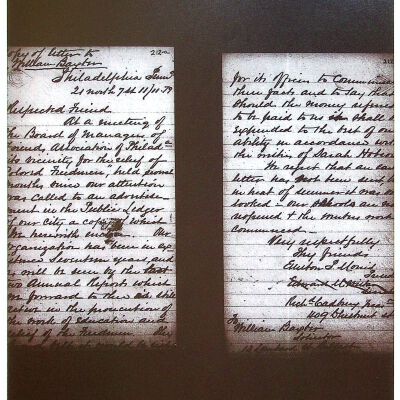 Copy of letter to
William Baxter 212a
Philadelphia
21 north 7th 11/11.79
Respected Friend.
At a meeting of
the Board of Managers of
Friends Association of Philada
its vicinity for the relief of
colored Freedmen, held
months since our attention
was called to an advertise-
ment in the Public Ledger
of our city a copy of which
we herewith enclose Our
organization has been in ex-
istence Seventeen years, and
as will be seen by the last
two Annual Reports which
we forward to thee is still
active in the prosecution of
the work of education and
relief of the Freedmen
212
for its officers to communicate
these facts and to say that
should the money referred
to be paid to us shall be
expended to the best of our
ability in accordance with
the wishes of Sarah
We regret that an earlier
letter was not sent
in heat of summer it was over
looked - our schools are now
reopened & the winters work
commenced -
Very respectfully
Thy friends
Richd Cadbury
409 Chestnut st
To
William Baxter